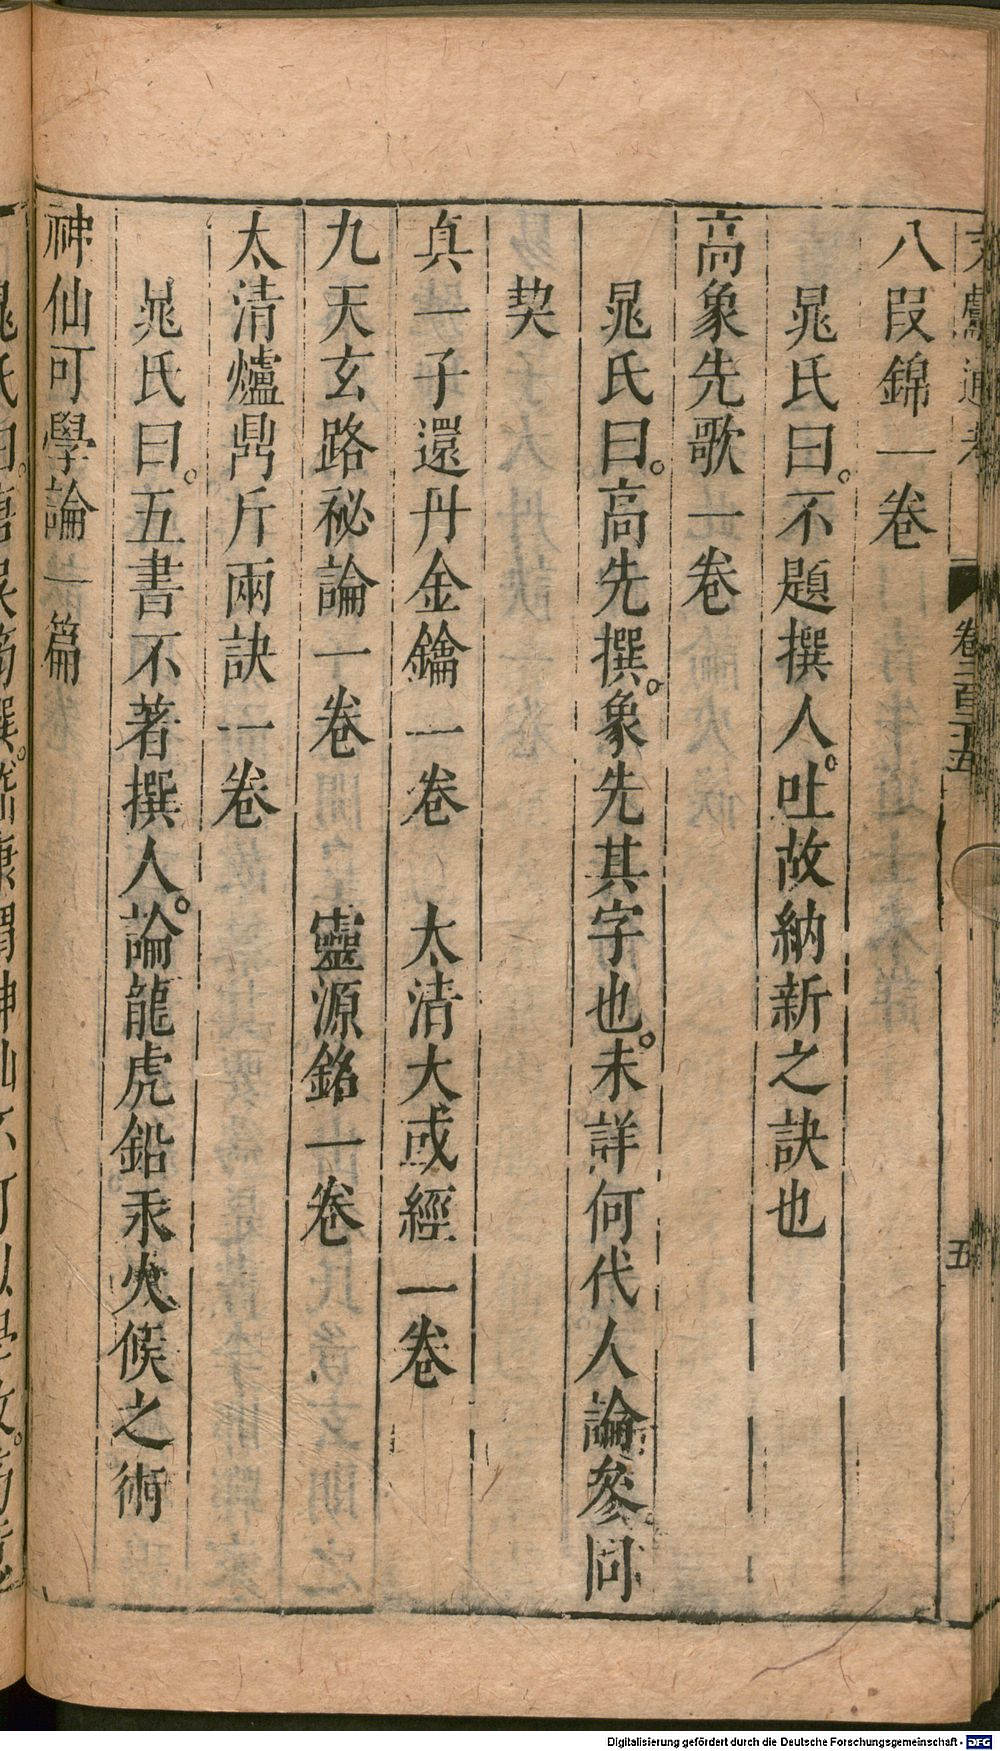 文獻通考 卷二百二十五 五
八段錦一卷
晁氏曰。不題撰人。吐故納新之訣也
高象先歌一卷
晁氏曰。高先撰。象先其字也。未詳何代人論參同
契
真一子還丹金鑰一卷 太清大或經一卷
九天玄路祕論一卷 靈源銘一卷
太清爐鼎斤兩訣一卷
晁氏曰。五書不著撰人。論龍虎鉛汞火候之術
神仙可學論一篇
Digitalisierung gefördert durch die Deutsche Forschungsgemeinschaft - DFG